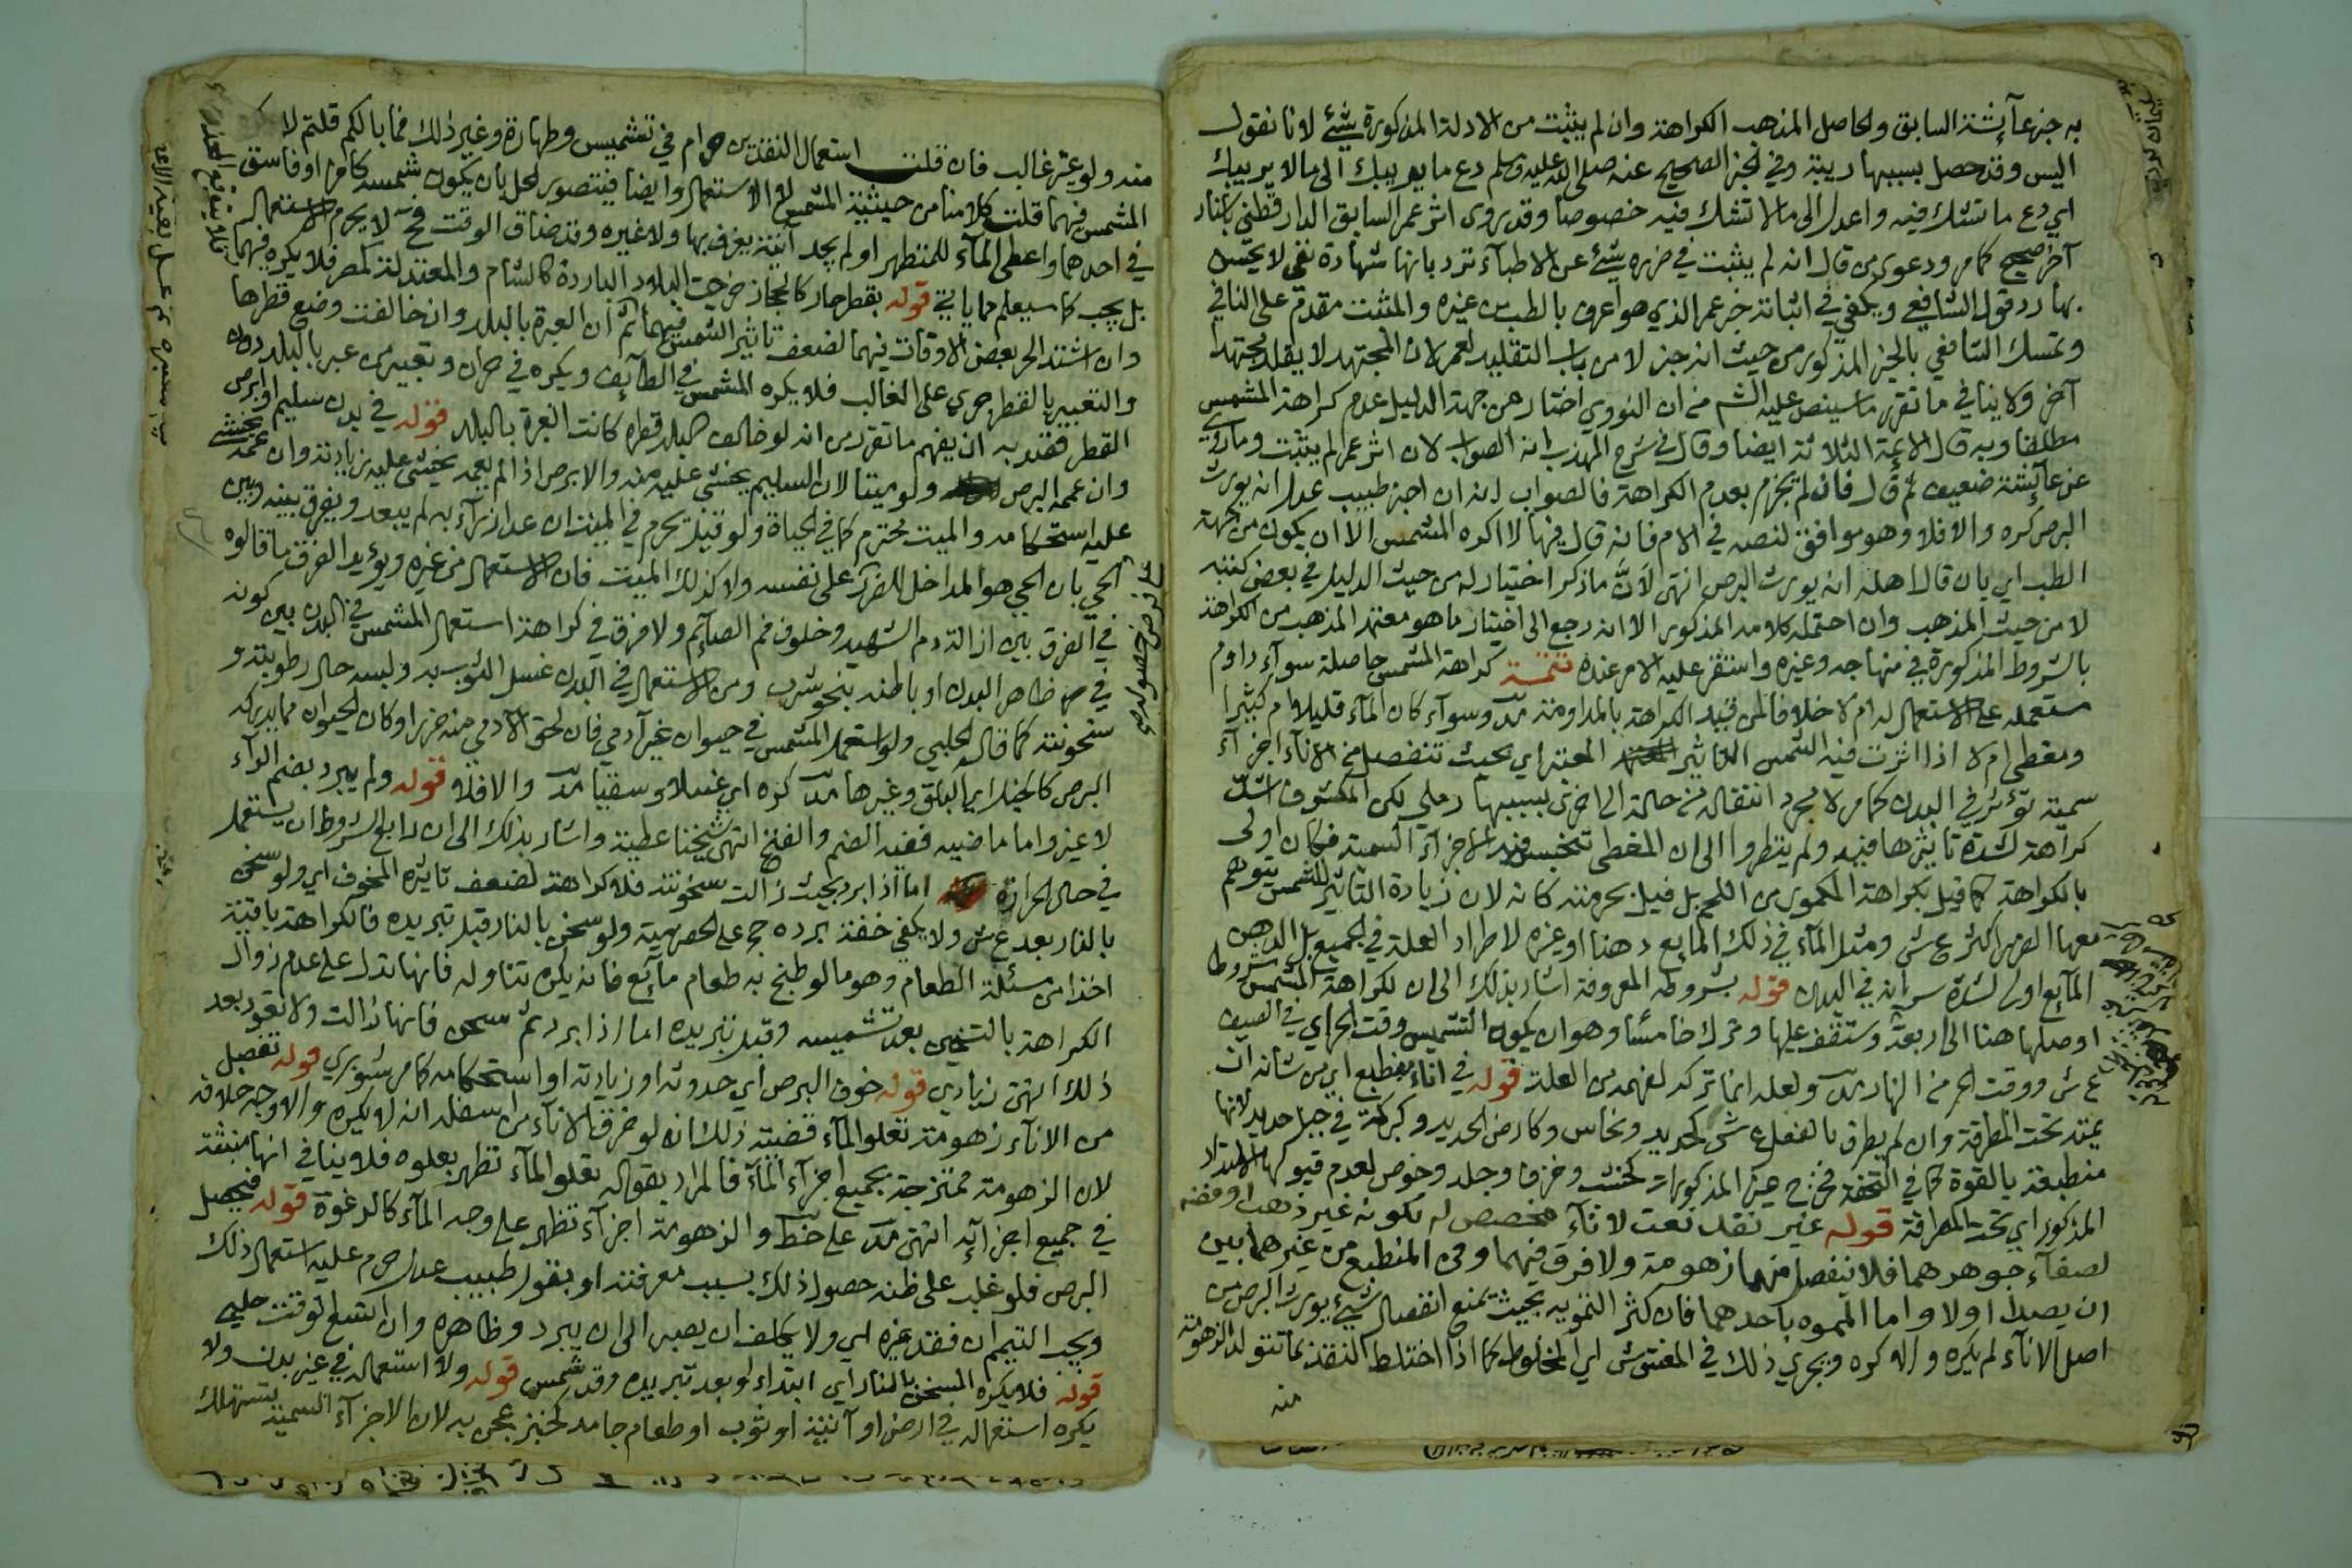 به خبر عآئشة السابق ولحاصل المذهب الكراهة وان لم يثبت من الادلة المذكورة شئ لانا نقول
اليس وقد حصل بسببها ريبة وفي الخبر الصحيح عنه صلى الله عليه وسلم دع ما يريبك الى ما لا يريبك
اي دع ما تشك فيه واعدل الى ما لا تشك فيه خصوصا وقد روى اثر عمر السابق الدارقطني باسناد
آخر صحيح كما مر ودعوى من قال انه لم يثبت في ضرره شئ عن الاطبآء ترد بانها شهادة نفي لا يحسن
بها رد قول الشافعي ويكفي في اثباته خبر عمر الذي هو اعرف بالطب من غيره والمثبت مقدم على النافي
وتمسك الشافعي بالخبر المذكور من حيث انه خبر لا من باب التقليد لعمر لان المجتهد لا يقلد مجتهدا
آخر ولا ينافي ما تقرر ما سينص عليه الشم من ان النووي اختار من جهة الدليل عدم كراهة المشمس
مطلقا وبه قال الائمة الثلاثة ايضا وقال في شرح المهذب انه الصواب لان اثر عمر لم يثبت وما روي
عن عآئشة ضعيف ثم قال فان لم نجزم بعدم الكراهة فالصواب انه ان اخبر طبيب عدل انه يورث
البرص كره والا فلا وهو موافق لنصه في الام فانه قال فيها لا اكره المشمس الا ان يكون من جهة
الطب اي بان قال اهله انه يورث البرص انتهى لانّ ما ذكر اختيار له من حيث الدليل في بعض كتبه
لا من حيث المذهب وان احتمله كلامه المذكور الا انه رجع الى اختيار ما هو معتمد المذهب من الكراهة
بالشروط المذكورة في منهاجه وغيره واستقر عليه الامر عنده تتمة كراهة المشمس حاصلة سوآء داوم
مستعمله على الاستعمال له ام لا خلافا لمن قيد الكراهة بالمداومة مدّ وسوآء كان المآء قليلا ام كثيرا
ومغطى ام لا اذا اثرت فيه الشمس التأثير المعتبر اي بحيث تنفصل من الانآء اجزآء
سمية تؤثر في البدن كما مر لا مجرد انتقاله من حالة الى اخرى بسببها رملي لكن المكشوف اشدّ
كراهة لشدة تأثيرها فيه ولم ينظروا الى ان المغطى تنحبس فيه الاجزآء السمية فكان اولى
بالكراهة كما قيل بكراهة المكمور من اللحم بل قيل بحرمته كأنه لان زيادة التأثير للشمس يتوهم
معها الضرر اكثر ع ش ومثل المآء في ذلك المايع دهنا او غيره لاطراد العلة في الجميع بل الدهن
المآيع اولى لشدة سريانه في البدن قوله بشروطه المعروفة اشار بذلك الى ان لكراهة المشمس شروطا
اوصلها هنا الى اربعة وستقف عليها وترك خامسًا وهو ان يكون التشميس وقت الحر اي في الصيف
ع ش ووقت الحر من النهار مدّ ولعله انما تركه لفهمه من العلة قوله في اناء منطبع اي من شانه ان
يمتد تحت المطرقة وان لم يطرق بالفعل ع ش كحديد ونحاس وكارض الحديد وكبركة في جبل حديد لانها
منطبعة بالقوة كما في التحفة فخرج غير المذكورات كخشب وخزف وجلد وخوص لعدم قبولها الامتداد
المذكور اي تحت المطرقة قوله غير نقد نعت لانآء مخصص له بكونه غير ذهب او فضة
لصفآء جوهرهما فلا ينفصل منهما زهومة ولا فرق فيهما وفي المنطبع من غيرهما بين
ان يصدا اولا واما المموه باحدهما فان كثر التمويه بحيث يمنع انفصال شئ يورث البرص من
اصل الانآء لم يكره والا كره ويجري ذلك في المغشوش اي المخلوط كما اذا اختلط النقد بما تتولد الزهومة
منه
منه ولو غير غالب فان قلت استعمال النقدين حرام في تشميس وطهارة وغير ذلك فما بالكم قلتم لا
المشمس فيهما قلت كلامنا من حيثية المشمس لا الاستعمال وايضا فيتصور الحل بان يكون شمسه كافر او فاسق
في احدهما واعطى المآء للمتطهر او لم يجد آنية يغرف بها ولا غيره وقد ضاق الوقت فح لا يحرم الاستعمال
بل يجب كما سيعلم مما ياتي قوله بقطر حار كالحجاز خرجت البلاد الباردة كالشام والمعتدلة كمصر فلا يكره فيهما
وان اشتد الحر بعض الاوقات فيهما لضعف تاثير الشمس فيهما ثم ان العبرة بالبلد وان خالفت وضع قطرها
والتعبير بالقطر جري على الغالب فلا يكره المشمس في الطآئف ويكره في حران وتعبير من عبر بالبلد دون
القطر قصد به ان يفهم ما تقرر من انه لو خالف البلد قطره كانت العبرة بالبلد قوله في بدن سليم او ابرص
وان عمه البرص ولو ميتا لان السليم يخشى عليه منه والابرص اذا لم يعمه يخشى عليه زيادته وان عمه يخشى
عليه استحكامه والميت محترم كما في الحياة ولو قيل يحرم في الميت ان عد ازرآء به لم يبعد ويفرق بينه وبين
الحي بان الحي هو المداخل للضرر على نفسه ولا كذلك الميت فان الاستعمال من غيره ويؤيد الفرق ما قالوه
في الفرق بين ازالة دم الشهيد وخلوف فم الصآئم ولا فرق في كراهة استعمال المشمس في البدن بين كونه
في ظاهر البدن او باطنه بنحو شرب ومن الاستعمال في البدن غسل الثوب به ولبسه حال رطوبته و
سخونته كما قال الحلبي ولو استعمل المشمس في حيوان غير آدمي فان لحق الآدمي منه ضرر او كان الحيوان مما يدركه
البرص كالخيل اي البلق وغيرها مدّ كره اي غسلا وسقيا مدّ والا فلا قوله ولم يبرد بضم الرآء
لا غير واما ماضيه ففيه الضم والفتح انتهى شيخنا عطية واشار بذلك الى ان رابع الشروط ان يستعمل
في حال الحرارة اما اذا برد بحيث زالت سخونته فلا كراهة لضعف تاثيره المخوف اي ولو سخن
بالنار بعد ع ش ولا يكفي خفة برده ح ج على الحضرمية ولو سخن بالنار قبل تبريده فالكراهة باقية
اخذا من مسئلة الطعام وهو ما لو طبخ به طعام مآئع فانه يكره تناوله فانها تدل على عدم زوال
الكراهة بالتسخين بعد تشميسه وقبل تبريده اما اذا برد ثم سخن فانها زالت ولا تعود بعد
ذلك انتهى زيادي قوله خوف البرص اي حدوثه او زيادته او استحكامه كما مر شوبري قوله تفصل
من الانآء زهومة تعلو المآء قضيته ذلك انه لو خرق الانآء من اسفله انه لا يكره والاوجه خلافه
لان الزهومة ممتزجة بجميع اجزآء المآء فالمراد بقوله تعلو المآء تظهر بعلوه فلا ينافي انها منبثة
في جميع اجزآئه انتهى مدّ على خط والزهومة اجزآء تظهر على وجه المآء كالرغوة قوله فيحصل
البرص فلو غلب على ظنه حصول ذلك بسبب معرفته او بقول طبيب عدل حرم عليه استعمال ذلك
ويجب التيمم ان فقد غيره اي ولا يكلف ان يصبر الى ان يبرد وظاهره وان اتسع الوقت حلبي
قوله فلا يكره المسخن بالنار اي ابتداء لو بعد تبريده وقد شمس قوله ولا استعماله في غير بدن ولا
يكره استعماله في ارض او آنية او ثوب او طعام جامد كخبز عجن به لان الاجزآء السمية تستهلك